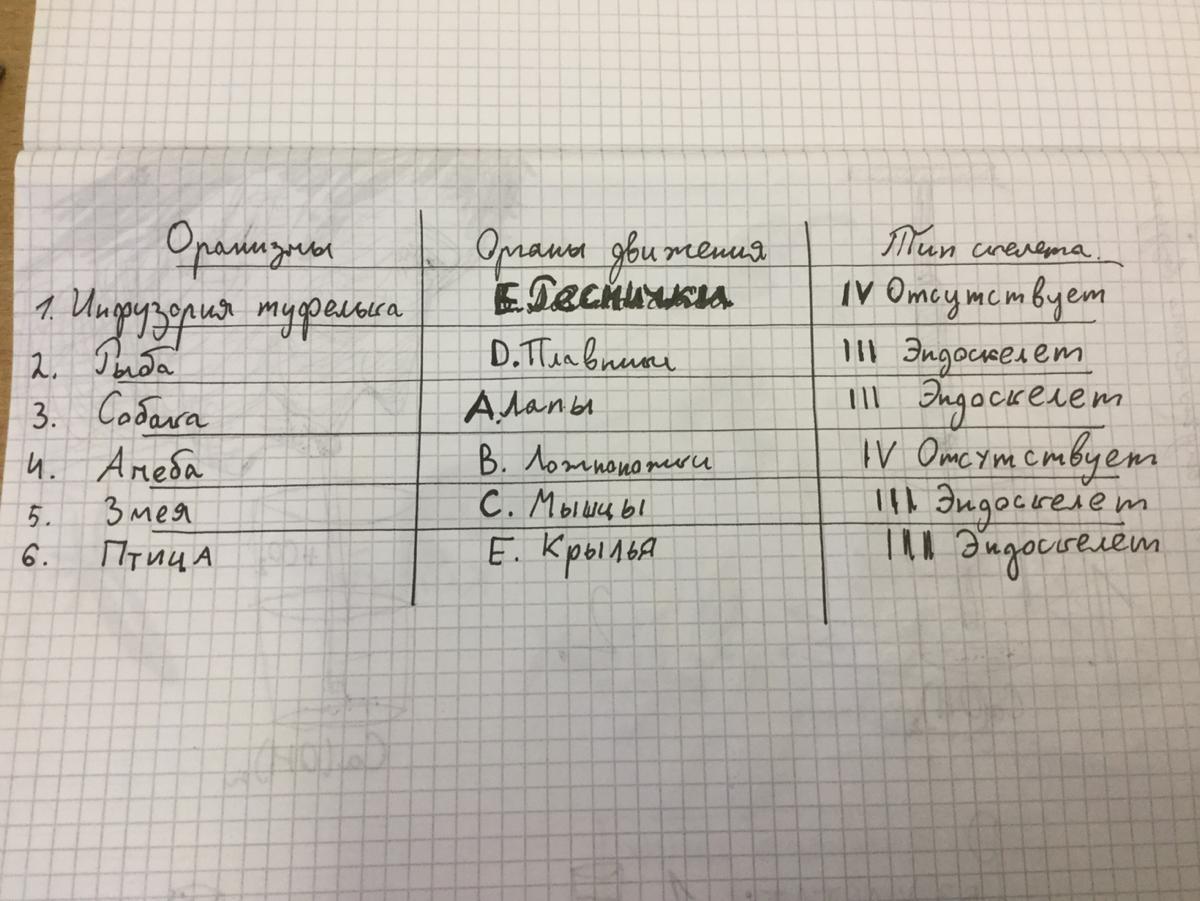 Оранизмы Органы движения Тип скелета.
1. Инфузория туфелька Е. Реснички IV Отсутствует
2. Рыба D. Плавники III Эндоскелет
3. Собака А. Лапы III Эндоскелет
4. Амеба В. Ложноножки IV Отсутствует
5. Змея С. Мышцы III Эндоскелет
6. Птица Е. Крылья III Эндоскелет